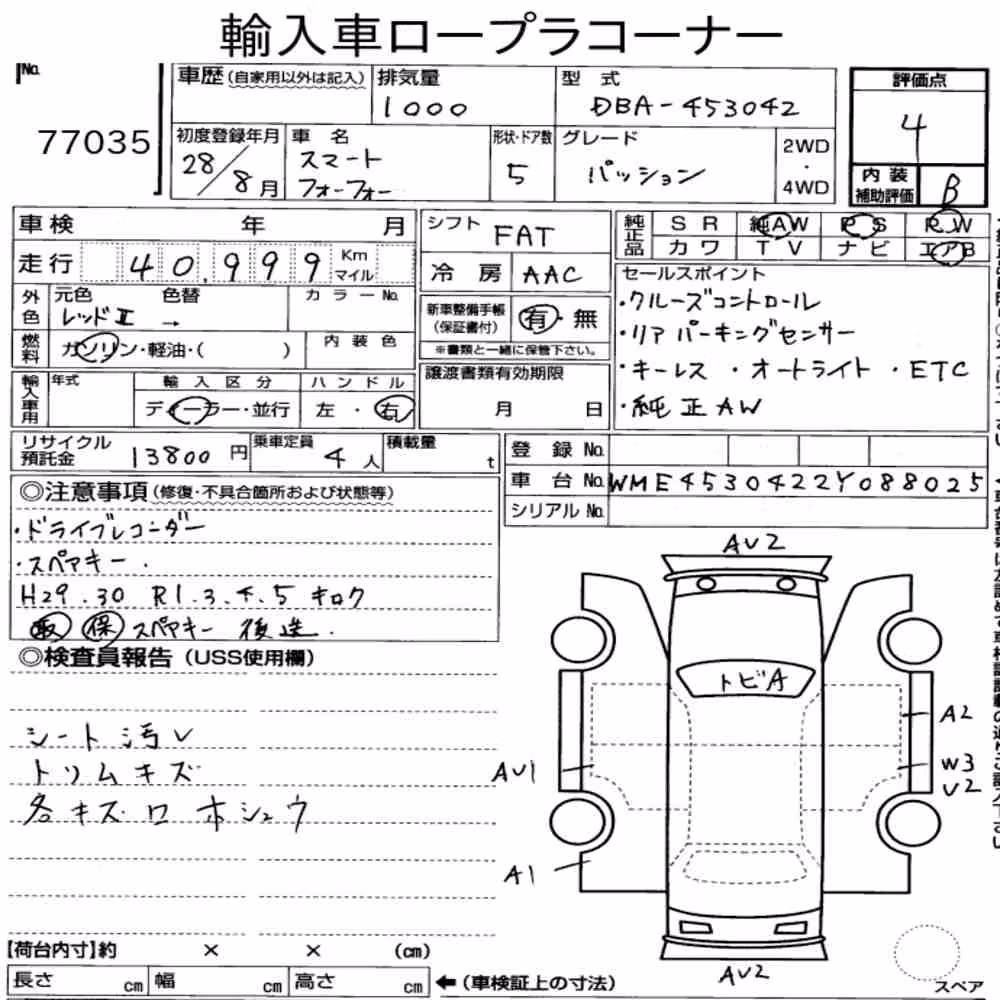 輸入車ロープラコーナー
No. 77035
車歴(自家用以外は記入)
排気量 1000
型式 DBA-453042
評価点 4
内装補助評価 B
初度登録年月 28/8月
車名 スマート フォーフォー
形状・ドア数 5
グレード パッション
2WD・4WD
車検 年 月
走行 40,999 Km マイル
シフト FAT
冷房 AAC
純正品 SR 純AW PS RW
カワ TV ナビ エアB
外色 元色 レッドII 色替 → カラーNo.
燃料 ガソリン・軽油・( ) 内装色
新車整備手帳(保証書付) 有・無
※書類と一緒に保管下さい。
セールスポイント
・クルーズコントロール
・リアパーキングセンサー
・キーレス ・オートライト ・ETC
・純正AW
輸入車用 年式 輸入区分 ディーラー・並行 ハンドル 左・右
譲渡書類有効期限 月 日
リサイクル預託金 13800円 乗車定員 4人 積載量 t
登録No.
車台No. WME4530422Y088025
シリアルNo.
◎注意事項(修復・不具合箇所および状態等)
・ドライブレコーダー
・スペアキー.
H29.30 R1.3.4.5 キロク
取 保 スペアキー 後送.
◎検査員報告(USS使用欄)
シート汚レ
トリムキズ
各キズロホシュウ
AU2
トビA
A2
AU1
W3
U2
A1
AU2
スペア
【荷台内寸】約 × × (cm)
長さ cm 幅 cm 高さ cm ←(車検証上の寸法)